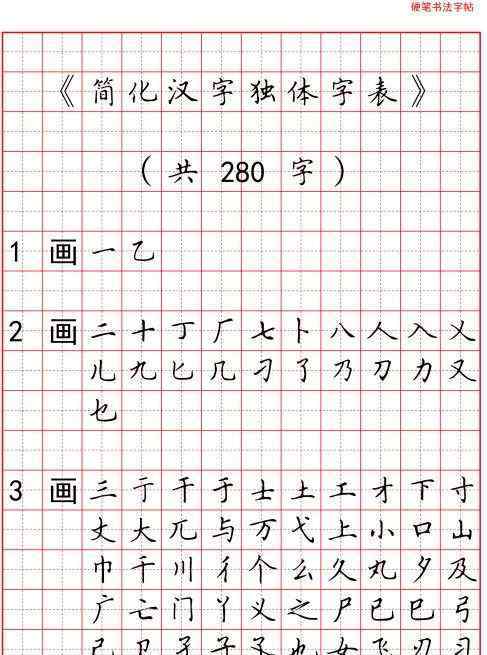 硬笔书法字帖
《简化汉字独体字表》
（共 280 字）
1 画 一 乙
2 画 二 十 丁 厂 七 卜 八 人 入 乂
儿 九 匕 几 刁 了 乃 刀 力 又
乜
3 画 三 亍 干 于 士 土 工 才 下 寸
丈 大 兀 与 万 弋 上 小 口 山
巾 千 川 彳 个 么 久 丸 夕 及
广 亡 门 丫 义 之 尸 已 巳 弓
己 卫 孑 子 孓 也 女 飞 刃 习